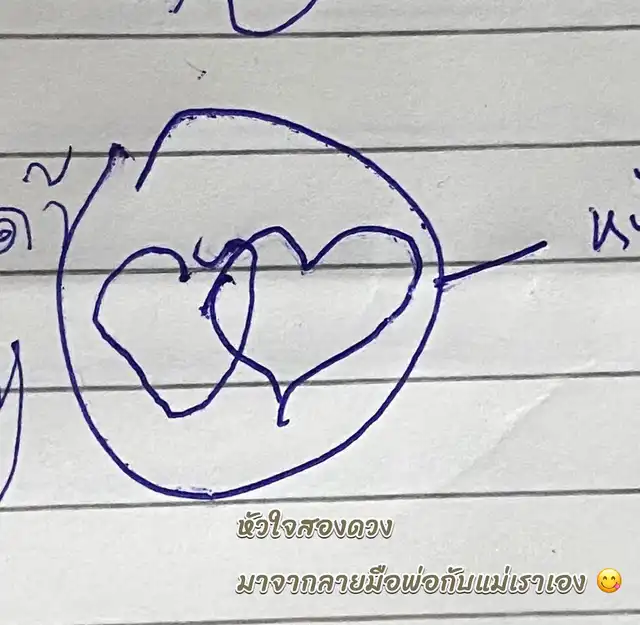 หัวใจสองดวง
มาจากลายมือพ่อกับแม่เราเอง 😋